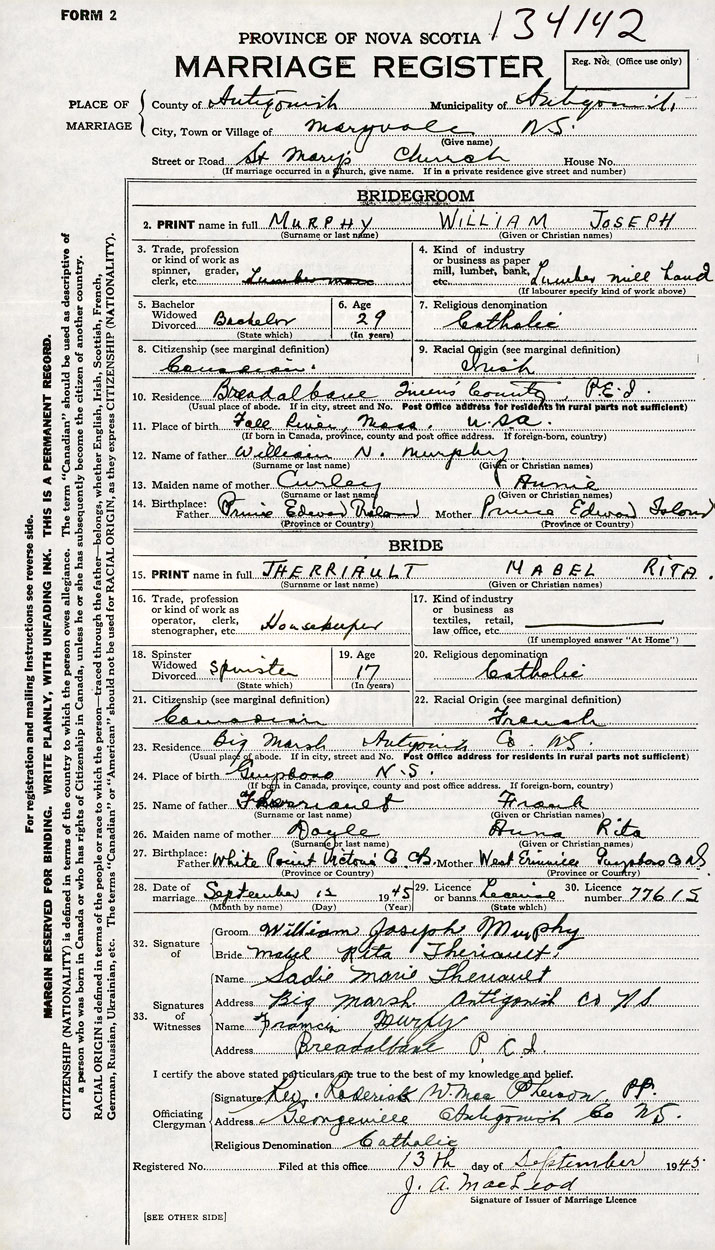 FORM 2
134142
PROVINCE OF NOVA SCOTIA
MARRIAGE REGISTER
Reg. No: (Office use only)
PLACE OF MARRIAGE
County of Antigonish Municipality of Antigonish
City, Town or Village of Maryvale N.S.
(Give name)
Street or Road St Mary's Church House No.
(If marriage occurred in a church, give name. If in a private residence give street and number)
BRIDEGROOM
2. PRINT name in full MURPHY WILLIAM JOSEPH
(Surname or last name) (Given or Christian names)
3. Trade, profession or kind of work as spinner, grader, clerk, etc. Lumber man
4. Kind of industry or business as paper mill, lumber, bank, etc. Lumber mill hand
(If labourer specify kind of work above)
5. Bachelor Widowed Divorced Bachelor
(State which)
6. Age 29
(In years)
7. Religious denomination
Catholic
8. Citizenship (see marginal definition)
Canadian.
9. Racial Origin (see marginal definition)
Irish
10. Residence Breadalbane Queen's County, P.E.I.
(Usual place of abode. If in city, street and No. Post Office address for residents in rural parts not sufficient)
11. Place of birth Fall River, Mass. U.S.A.
(If born in Canada, province, county and post office address. If foreign-born, country)
12. Name of father William N. Murphy
(Surname or last name) (Given or Christian names)
13. Maiden name of mother Curley Annie
(Surname or last name) (Given or Christian names)
14. Birthplace: Father Prince Edward Island Mother Prince Edward Island
(Province or Country) (Province or Country)
BRIDE
15. PRINT name in full THERRIAULT MABEL RITA.
(Surname or last name) (Given or Christian names)
16. Trade, profession or kind of work as operator, clerk, stenographer, etc. Housekeeper
17. Kind of industry or business as textiles, retail, law office, etc.
(If unemployed answer "At Home")
18. Spinster Widowed Divorced Spinster
(State which)
19. Age 17
(In years)
20. Religious denomination
Catholic
21. Citizenship (see marginal definition)
Canadian
22. Racial Origin (see marginal definition)
French
23. Residence Big Marsh Antigonish Co. N.S.
(Usual place of abode. If in city, street and No. Post Office address for residents in rural parts not sufficient)
24. Place of birth Guysboro N.S.
(If born in Canada, province, county and post office address. If foreign-born, country)
25. Name of father Therriault Frank
(Surname or last name) (Given or Christian names)
26. Maiden name of mother Doyle Anna Rita
(Surname or last name) (Given or Christian names)
27. Birthplace: Father White Point Victoria Co C.B. Mother West Guysboro Co N.S.
(Province or Country) (Province or Country)
28. Date of marriage September 12 1945
(Month by name) (Day) (Year)
29. Licence or banns License
(State which)
30. Licence number 77615
32. Signature of
Groom William Joseph Murphy
Bride Mabel Rita Theriault.
33. Signatures of Witnesses
Name Sadie Marie Theriault
Address Big Marsh Antigonish Co NS
Name Francis Murphy
Address Breadalbane P.E.I.
I certify the above stated particulars are true to the best of my knowledge and belief.
Officiating Clergyman
Signature Rev. Roderick W. MacPherson, P.P.
Address Georgeville Antigonish Co NS.
Religious Denomination Catholic
Registered No. Filed at this office 13th day of September 1945.
J. A. MacLeod
Signature of Issuer of Marriage Licence
[SEE OTHER SIDE]
For registration and mailing instructions see reverse side.
MARGIN RESERVED FOR BINDING. WRITE PLAINLY, WITH UNFADING INK. THIS IS A PERMANENT RECORD.
CITIZENSHIP (NATIONALITY) is defined in terms of the country to which the person owes allegiance. The term "Canadian" should be used as descriptive of
a person who was born in Canada or who has rights of Citizenship in Canada, unless he or she has subsequently become the citizen of another country.
RACIAL ORIGIN is defined in terms of the people or race to which the person—traced through the father—belongs, whether English, Irish, Scottish, French,
German, Russian, Ukrainian, etc. The terms "Canadian" or "American" should not be used for RACIAL ORIGIN, as they express CITIZENSHIP (NATIONALITY).